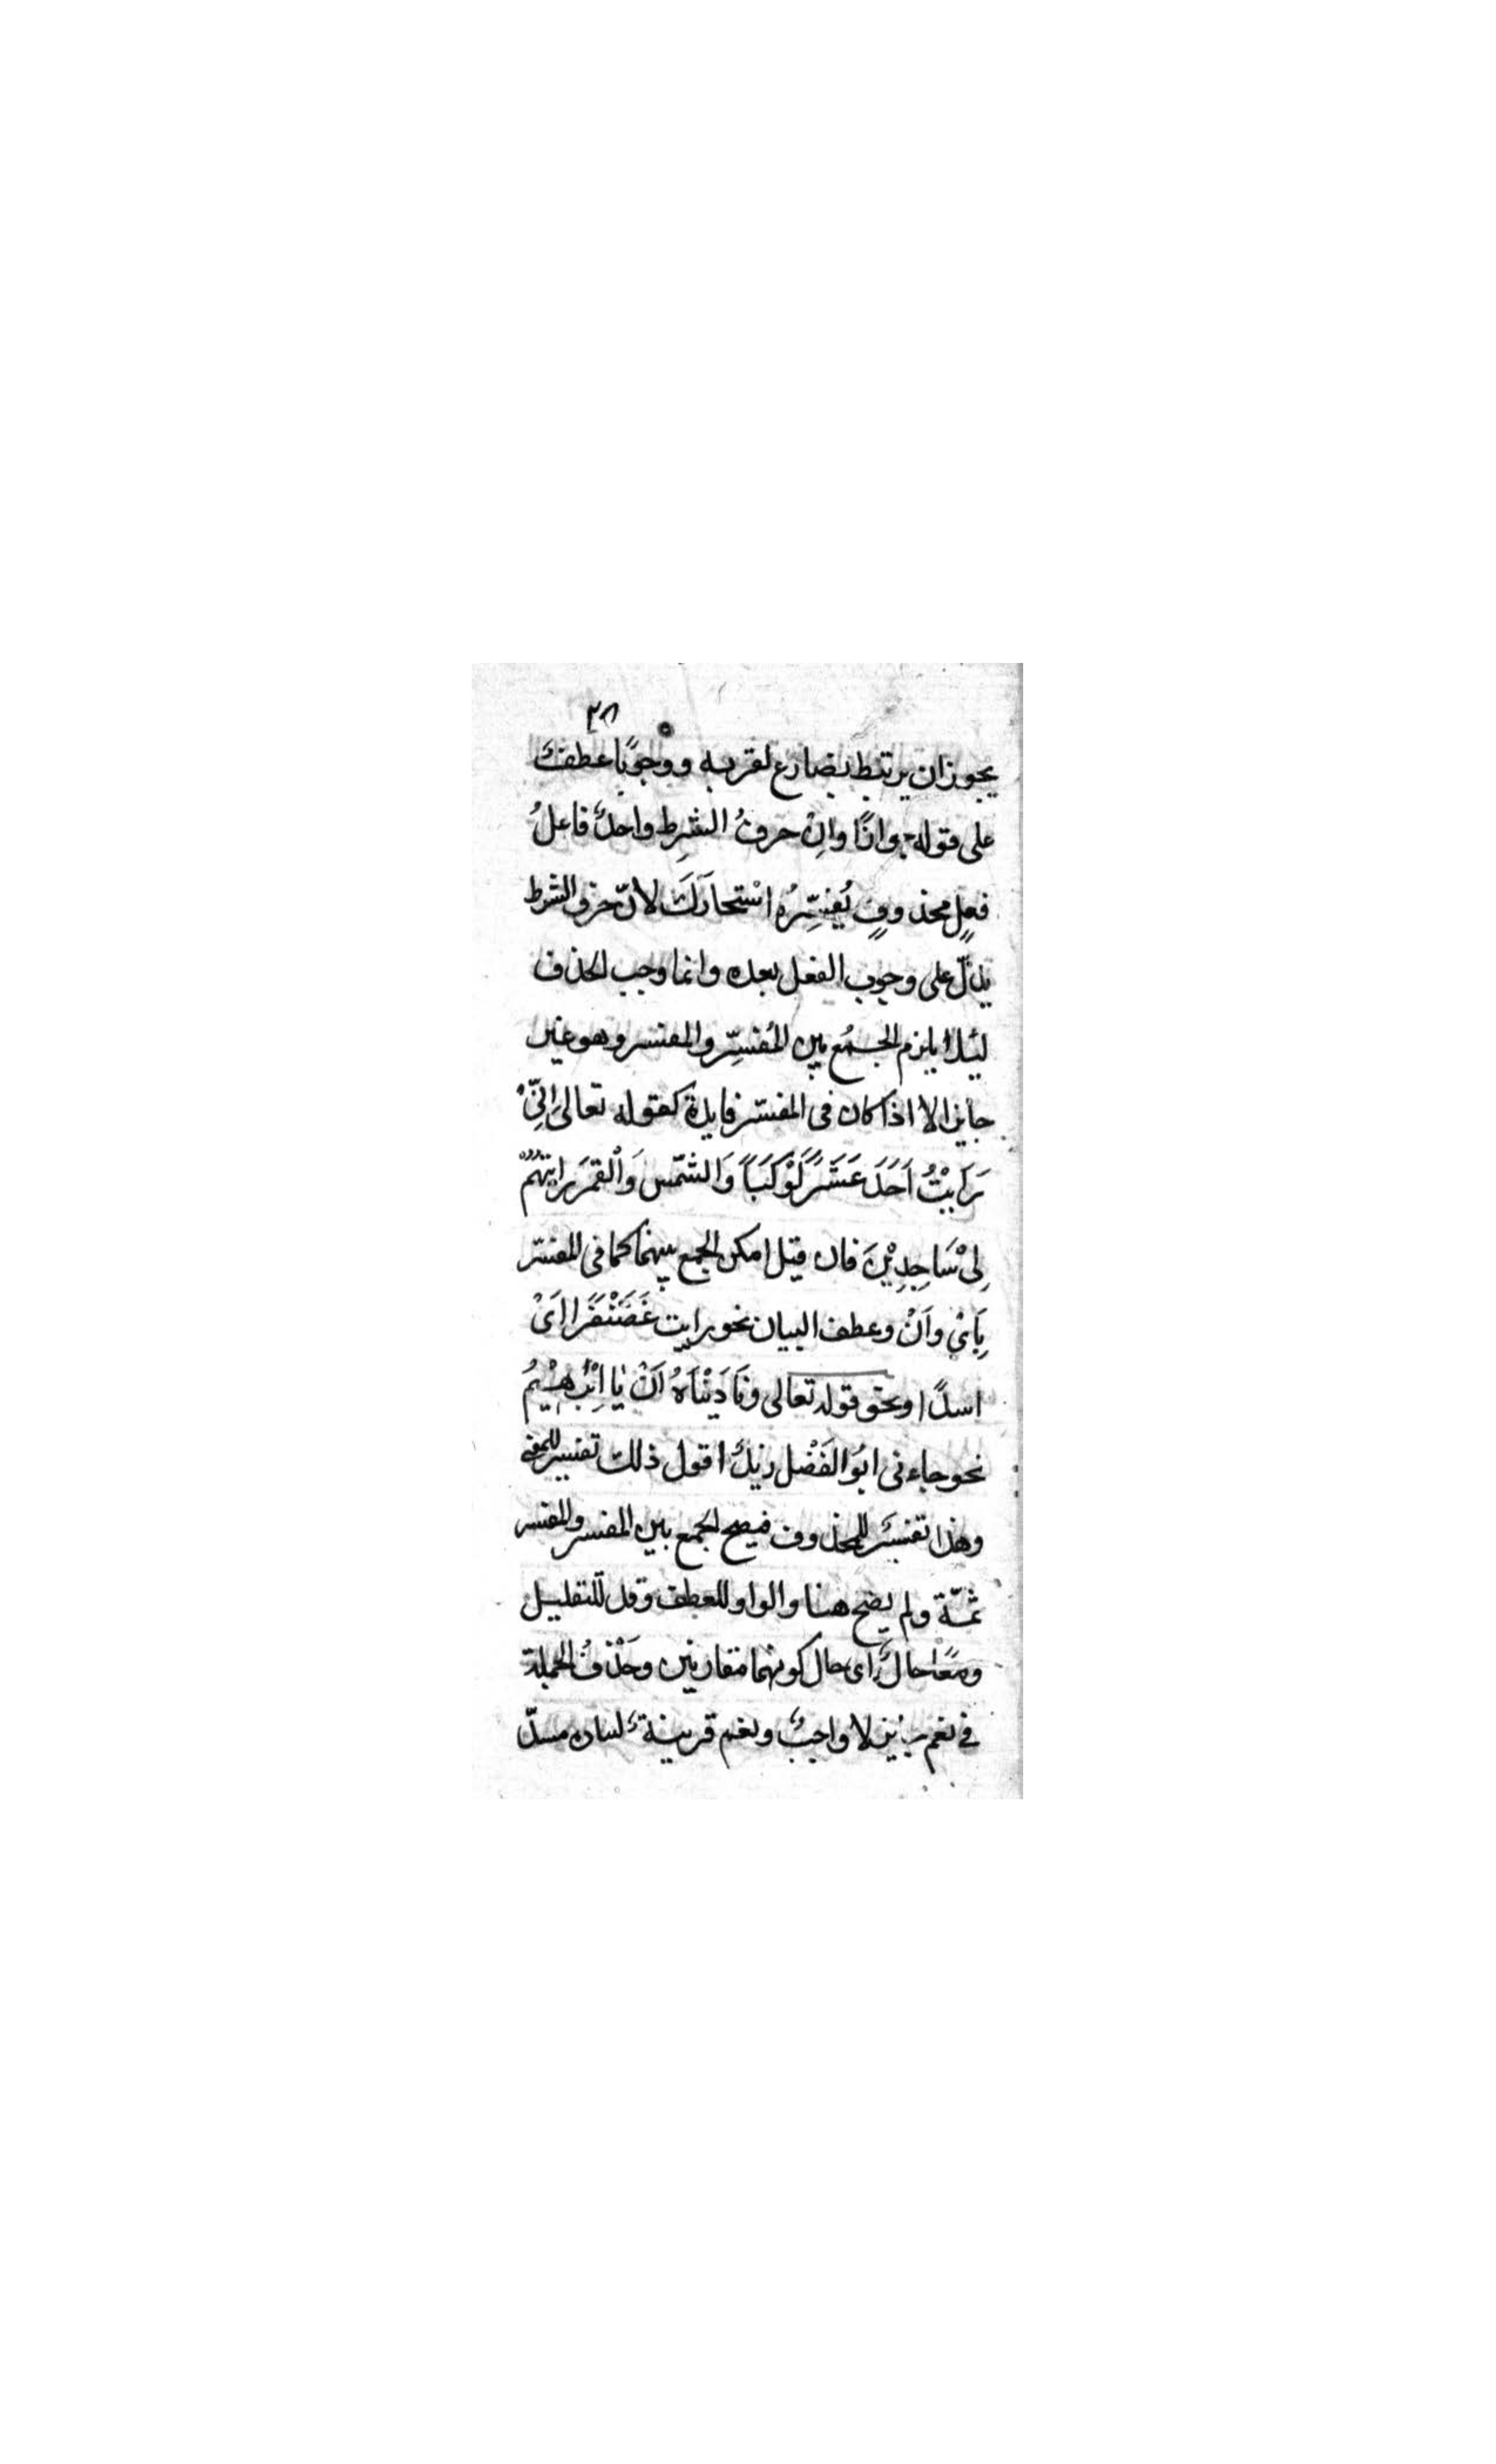 ٣٨
يجوز ان يرتبط بضارع لقربه ووجوبًا عطف
على قوله جوازًا وان حرفُ الشرط واحدٌ فاعلُ
فعلٍ محذوفٍ يُفسّرُه استجارك لانّ حرف الشرط
يدلّ على وجوب الفعل بعده وانما وجب الحذف
ليئلا يلزم الجمعُ بين المُفسِّر والمفسر وهو غير
جايز الا اذا كان فى المفسّر فايدة كقوله تعالى اِنِّىْ
رَاَيْتُ اَحَدَ عَشَرَ كَوْكَبًا وَالشَّمْسَ وَالْقَمَرَ رايتهُمْ
لِىْ سَاجِدِيْنَ فان قيل امكن الجمع بينهما كما فى المفسّر
بِاَىْ واَنْ وعطف البيان نحو رايت غَضَنْفَرًا اَىْ
اسدًا ونحو قوله تعالى ونَادَيْنَاهُ اَنْ يَا اِبْرٰهِيْمُ
نحو جاءنى ابُو الفَضْل زيدٌ اقول ذلك تفسير للمعنى
وهذا تفسيرٌ للمحذوف فيصح الجمع بين المفسر والمفسر
ثمّة ولم يصح هنا والواو للعطف وقد للتقليل
ومعًا حالٌ اى حال كونهما مقارنين وحَذْفُ الجملة
فى نعم زيد لا واجبٌ ونعم قرينة لسادّه مسدّ